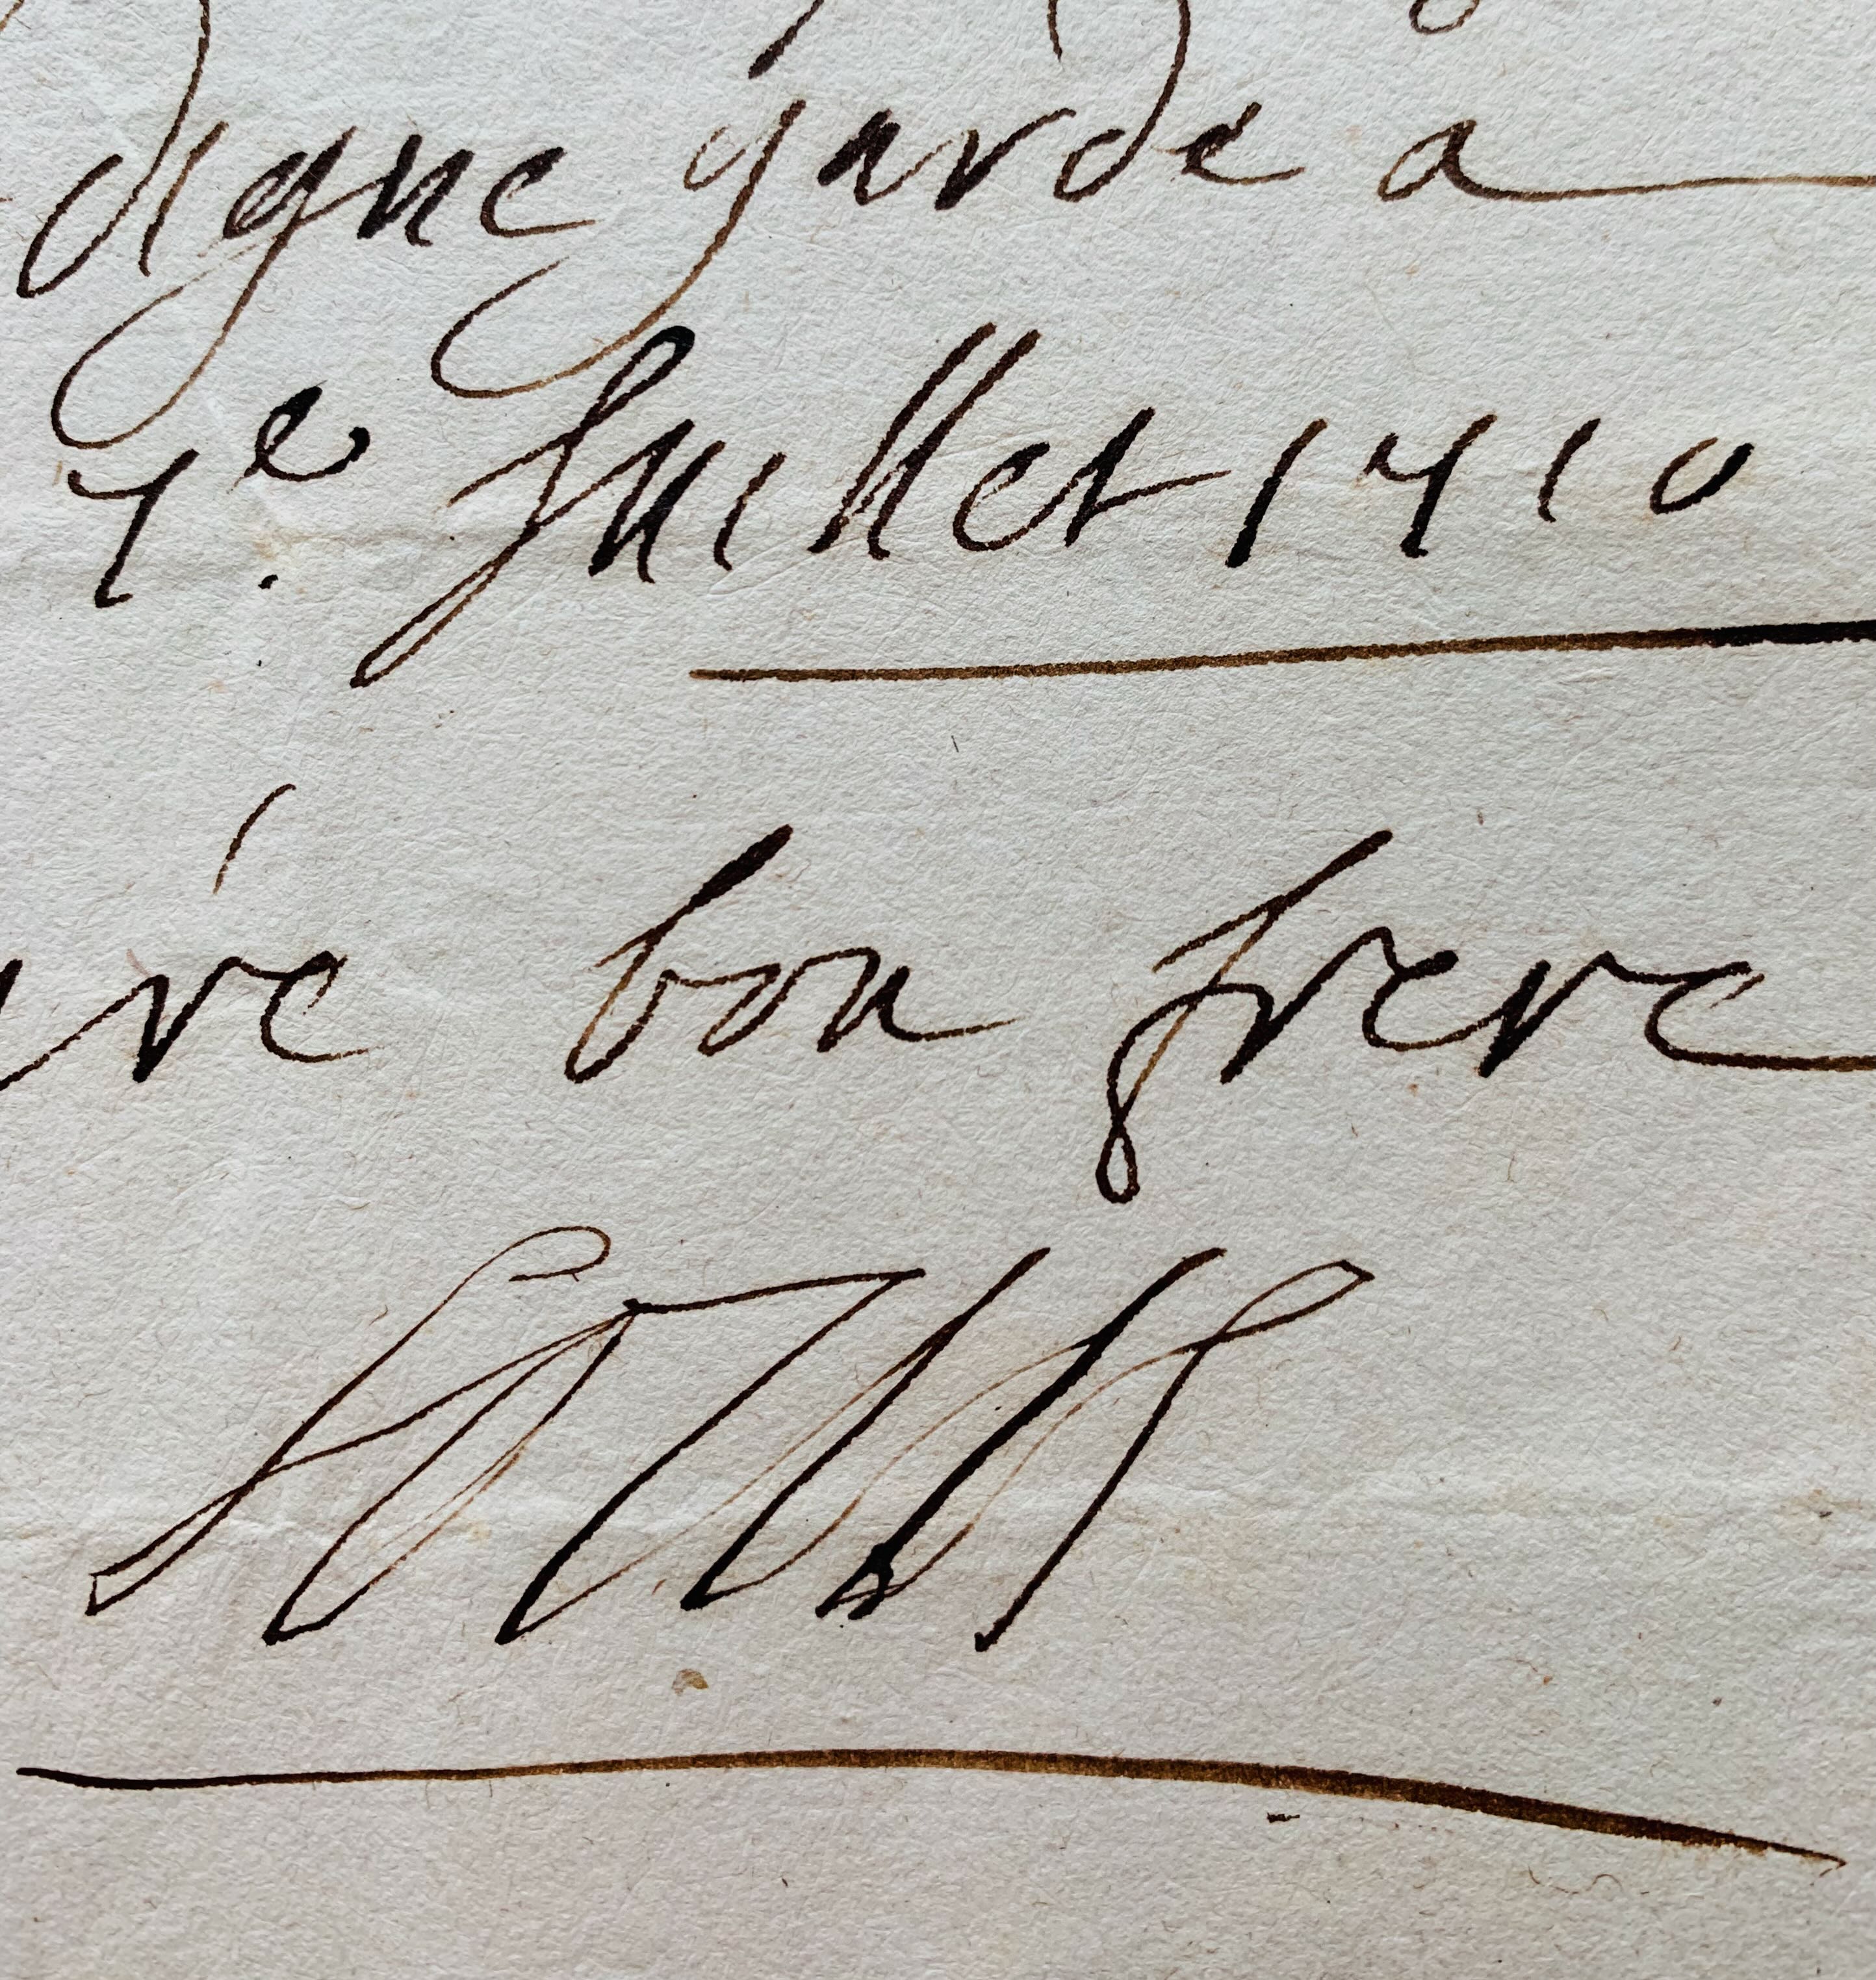 digne garde a
7e. Juillet 1710
re bon frere
Louis